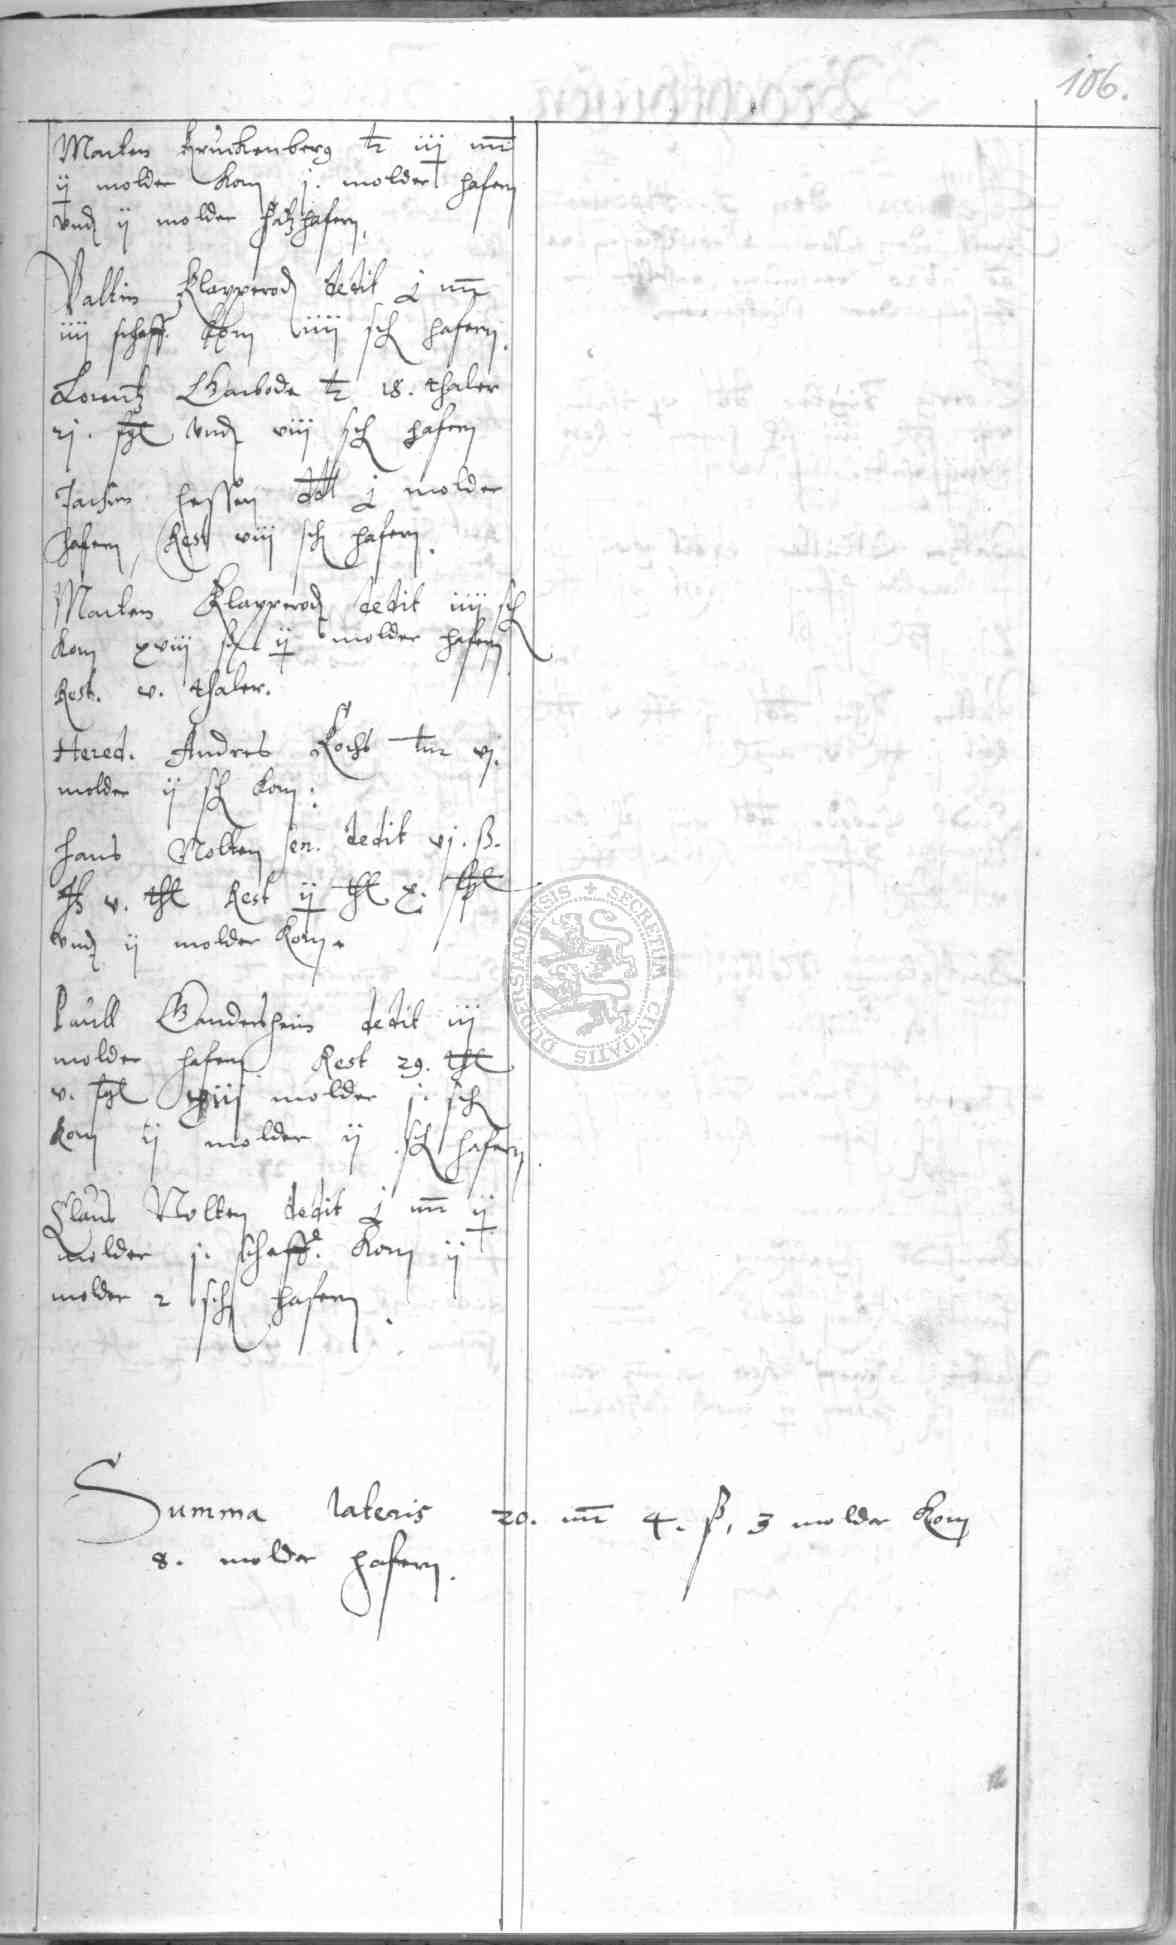 106.
Marten Kruckenberg tz iij mr
ij molder Korn j. molder hafern
vnd ij molder hafern,
Valtin Klapperod dedit j mr
iiij scheff. Korn iiij sch hafern.
Lorentz Garbode tz 18. thaler
rj. fgl vnd viij sch hafern
Jachim hessen ddt j molder
hafern, Rest viij sch hafern.
Marten Klapperod dedit iiij sch
Korn xviij sch ij molder hafern
Rest. v. thaler.
Hered. Andres Kochs vj.
molder ij sch Korn.
hans Nolten sen. dedit vj. ß.
v. thl Rest ij thl x. fgl
vnd ij molder Korn.
Paull Gandersheim dedit iij
molder hafern Rest 29. thl
v. fgl molder j. sch
Korn ij molder ij sch hafern.
Claus Nolten dedit j mr ij
molder j. scheff. Korn ij
molder 2 sch hafern.
Summa lateris 20. mr 4. ß, 3 molder Korn
8. molder hafern.
SECRETUM CIVITATIS DUDERSTADIENSIS